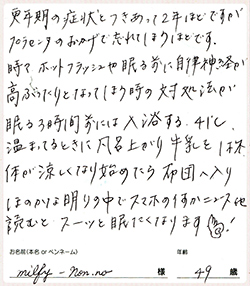 更年期の症状とつきあって2年ほどですが
プラセンタのおかげで忘れてしまうほどです。
時々ホットフラッシュや眠る前に自律神経が
高ぶったりとなってしまう時の対処法が
眠る3時間前には入浴する。少し
温まってるときに風呂上がり牛乳を1杯
体が涼しくなり始めたら布団へ入り
ほのかな明りの中でスマホのすかニュース他
読むとスーッと眠たくなります!
お名前(本名 or ペンネーム)
年齢
milfy-non.no 様 49 歳